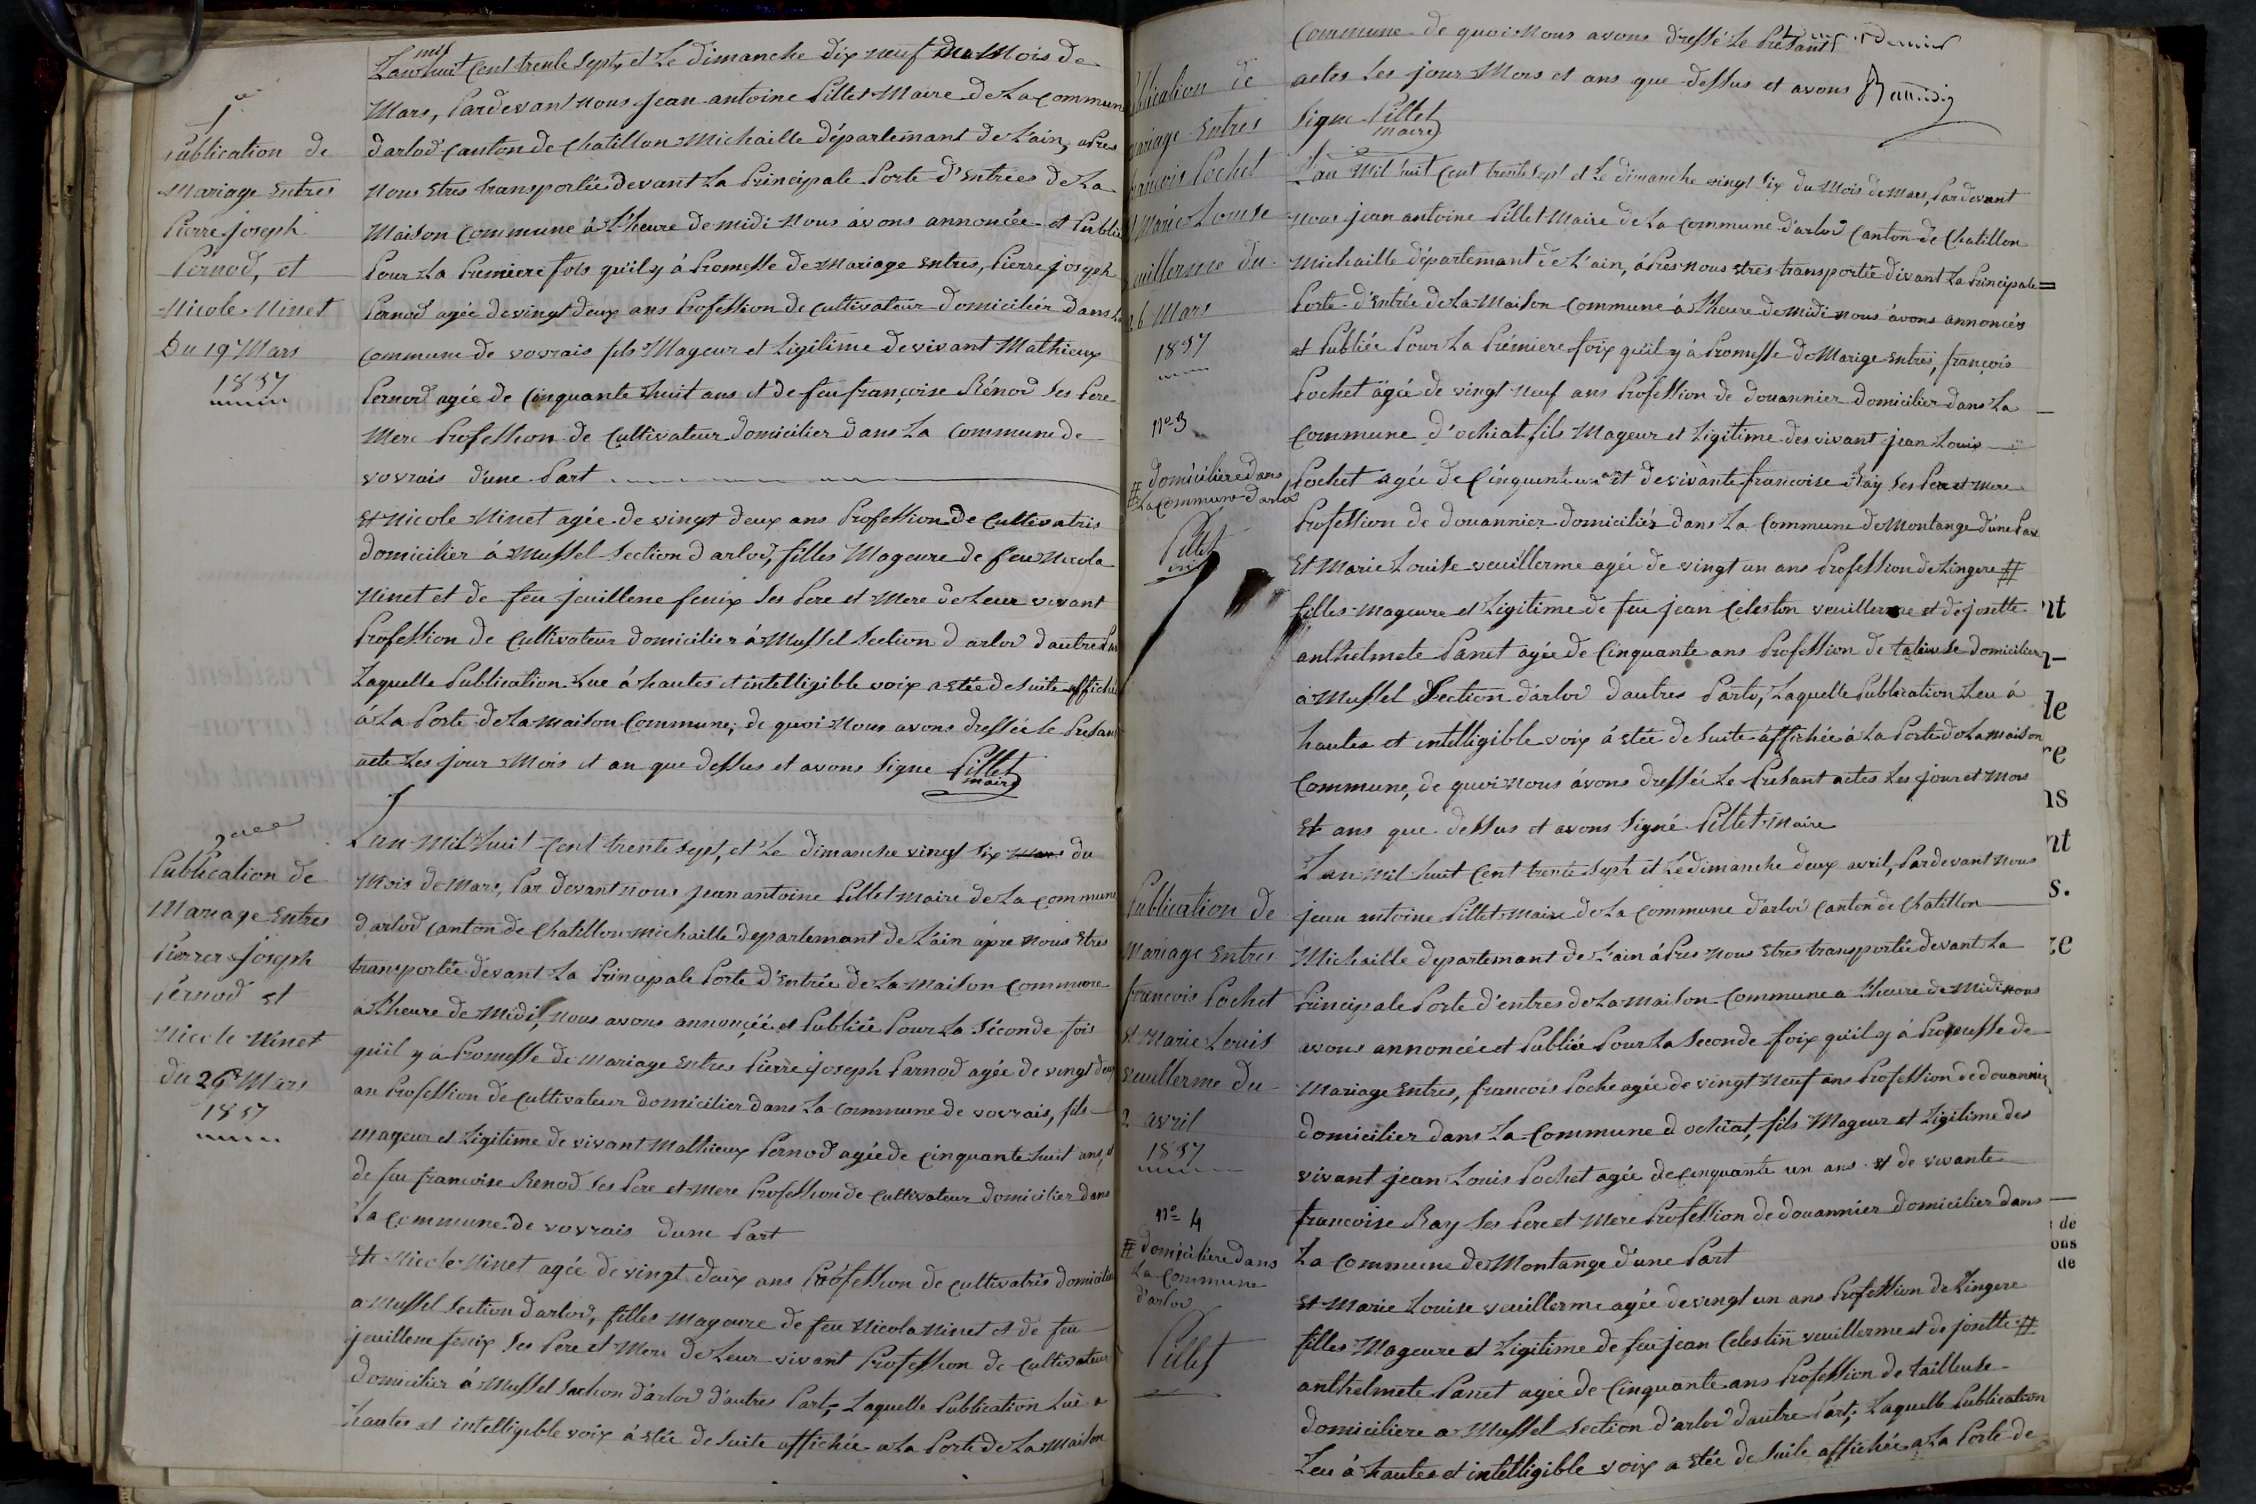 1re
Publication de
Mariage Entres
Pierre joseph
Pernod, et
Nicole Ninet
Du 19 Mars
1837
L'an mil huit Cent trente Sept, et Le dimanche dix neuf du Mois de
Mars, Pardevant nous jean antoine Pillet Maire de La Commune
d'arlod Canton de Chatillon Michaille département de L'ain, apres
nous Etres transportée devant La Principale Porte d'Entrées de La
Maison Commune à L'heure de midi nous avons annoncée et Publiée
Pour La Premiere fois qu'il y à Promesse de Mariage Entres, Pierre joseph
Pernod agée de vingt deux ans Profession de Cultivateur domicilier dans La
Commune de vovrais fils Mageur et Ligitime de vivant Mathieux
Pernod agée de Cinquante huit ans et de feu françoise Rénod Ses Pere
Mere Profession de Cultivateur domicilier dans La Commune de
vovrais d'une Part
Et Nicole Ninet agée de vingt deux ans Profession de Cultivatris
domicilier à Mussel Section d'arlod, filles Mageure de feu Nicola
Ninet et de feu jeuillene fenix Ses Pere et Mere de Leur vivant
Profession de Cultivateur domicilier à Mussel Section d'arlod d'autres Part
Laquelle Publication Lue à hautes et intelligible voix a etée de Suite affichée
à La Porte de La maison Commune, de quoi Nous avons dressée le Presant
acte Les jour Mois et an que dessus et avons Signe Pillet
maire
2me
Publication de
Mariage Entres
Pierre joseph
Pernod et
Nicole Ninet
du 26 Mars
1837
L'an Mil huit Cent trente Sept, et Le dimanche vingt Six Mars du
Mois de Mars, Par devant nous jean antoine Pillet maire de La Commune
d'arlod Canton de Chatillon Michaille departemant de L'ain apre nous Etres
transportée devant La Principale Porte d'Entrée de La Maison Commune
à L'heure de Midi, nous avons annonçéé et Publiée Pour La Séconde fois
qu'il y à Promesse de Mariage Entres Pierre joseph Parnod agée de vingt deux
an Profession de Cultivateur domicilier dans La Commune de vovrais, fils
Mageur et Ligitime de vivant Mathieux Pernod agée de Cinquante huit ans, et
de feu francoise Renod Ses Pere et Mere Profession de Cultivateur domicilier dans
La Commune de vovrais dune Part
Et Nicole Ninet agée de vingt deux ans Profession de Cultivatris domicilier
a Mussel Section d'arlod, filles Mageure de feu Nicola Ninet et de feu
jeuillene fenix Ses Pere et Mere de Leur vivant Profession de Cultivateur
domicilier à Mussel Section d'arlod d'autres Part, Laquelle Publication Lue a
hautes et intelligible voix à etée de Suite affichée a La Porte de La Maison
Commune de quoi Nous avons dressé Le Présant
actes Les jour Mois et ans que dessus et avons
Signe Pillet
maire
Publication de
mariage Entres
francois Pochet
et Marie Louise
veuillerme du
26 Mars
1837
nº 3
# domiciliere dans
La Commune d'arlod
Pillet
L'an Mil huit Cent trente Sept et Le dimanche vingt Six du Mois de mars, Pardevant
nous jean antoine Pillet Maire de La Commune d'arlod Canton de Chatillon
Michaille départemant de L'ain, àPres nous etres transportée devant La Principale
Porte d'Entrée de La Maison Commune à L'heure de midi nous àvons annoncés
et Publiée Pour La Prémiere foix qu'il y à Promesse de Marige Entres, françois
Pochet agée de vingt Neuf ans Profession de douannier domicilier dans La
Commune d'ochiat fils Mageur et Ligitime des vivant jean Louis
Pochet agée de Cinquente un ans et de vivante francoise Ray Ses Pere et Mere
Profession de douannier domiciliés dans La Commune de Montange d'une Part
Et Marie Louise veuillerme agée de vingt un ans Profession de Lingere #
filles mageure et Ligitime de feu jean Celestin veuillerme et de josette
anthelmete Panet agée de Cinquante ans Profession de talieuse domicilier
à Mussel Section d'arlod dautres Parts, Laquelle Publication Leu à
hautes et intelligible voix à etée de Suite affichée à La Porte de La maison
Commune, de quoi nous àvons dressée Le Presant actes Les jour et Mois
Et ans que dessus et avons Signé Pillet Maire
Publication de
Mariage Entres
francois Pochet
Et Marie Louis
veuillerme du
2 avril
1837
nº 4
# domiciliere dans
La Commune
d'arlod
Pillet
L'an Mil huit Cent trente Sept et Le dimanche deux avril, Pardevant nous
jean antoine Pillet Maire de La Commune d'arlod Canton de Chatillon
Michaille departemant de L'ain àPres nous Etres transportée devant La
Principale Porte d'entres de La Maison Commune a L'heure de Midi nous
avons annoncée et Publiée Pour La Seconde foix qu'il y à Promesse de
Mariage Entres, francois Poche agée de vingt Neuf ans Profession de douannier
domicilier dans La Commune d'ochiat, fils Mageur et Ligitime des
vivant jean Louis Pochet agée de Cinquante un ans et de vivante
francoise Ray Ses Pere et Mere Profession de douannier domicilier dans
La Commune de Montange d'une Part
Et Marie Louise veuillerme agée de vingt un ans Profession de Lingere
filles Mageure et Ligitime de feu jean Celestin veuillerme et de josette #
anthelmete Panet agée de Cinquante ans Profession de tailleuse
domiciliere a Mussel Section d'arlod d'autre Part, Laquelle Publication
Leu à hautes et intelligible voix a etée de Suite affichée a La Porte de